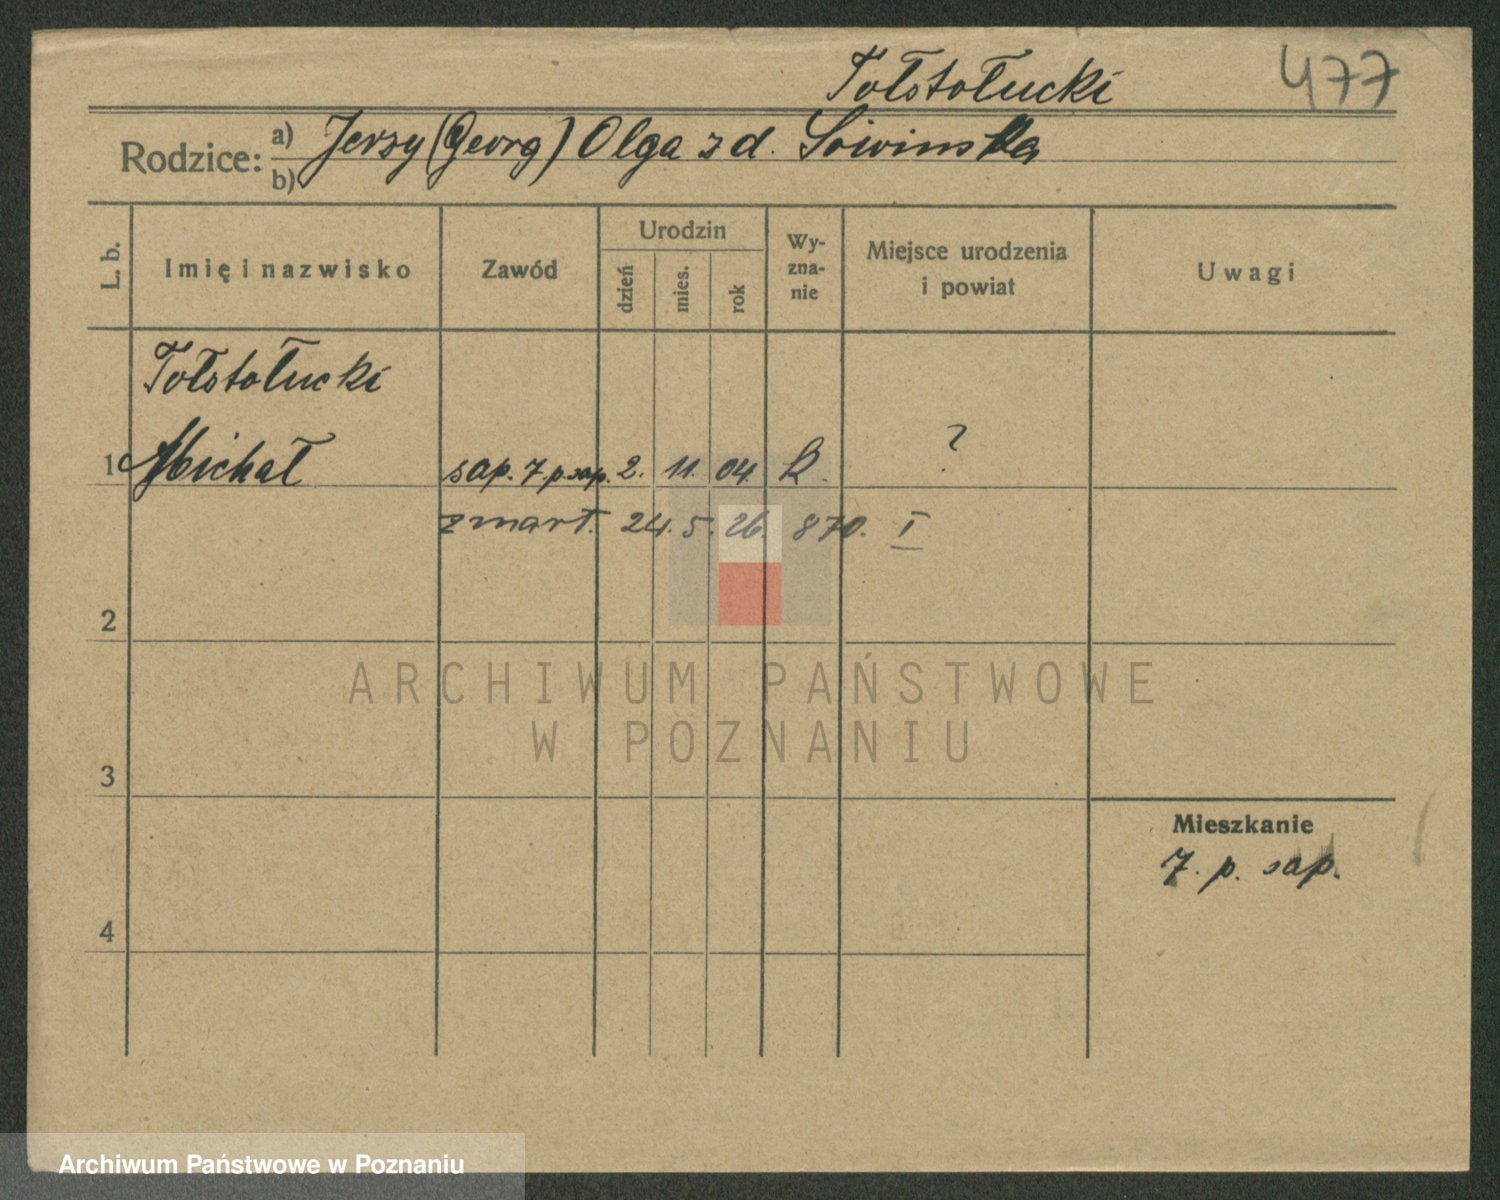 Tołstołucki 477
Rodzice: a) Jerzy (Georg) Olga z d. Sowinska
b)
L. b.
Imię i nazwisko
Zawód
Urodzin
dzień
mies.
rok
Wy-
zna-
nie
Miejsce urodzenia
i powiat
Uwagi
Tołstołucki
1 Michał sap. 7. p. sap. 2. 11. 04. ?
zmart. 24. 5. 26. 870. I
2
ARCHIWUM PAŃSTWOWE
W POZNANIU
3
Mieszkanie
7. p. sap.
4
Archiwum Państwowe w Poznaniu